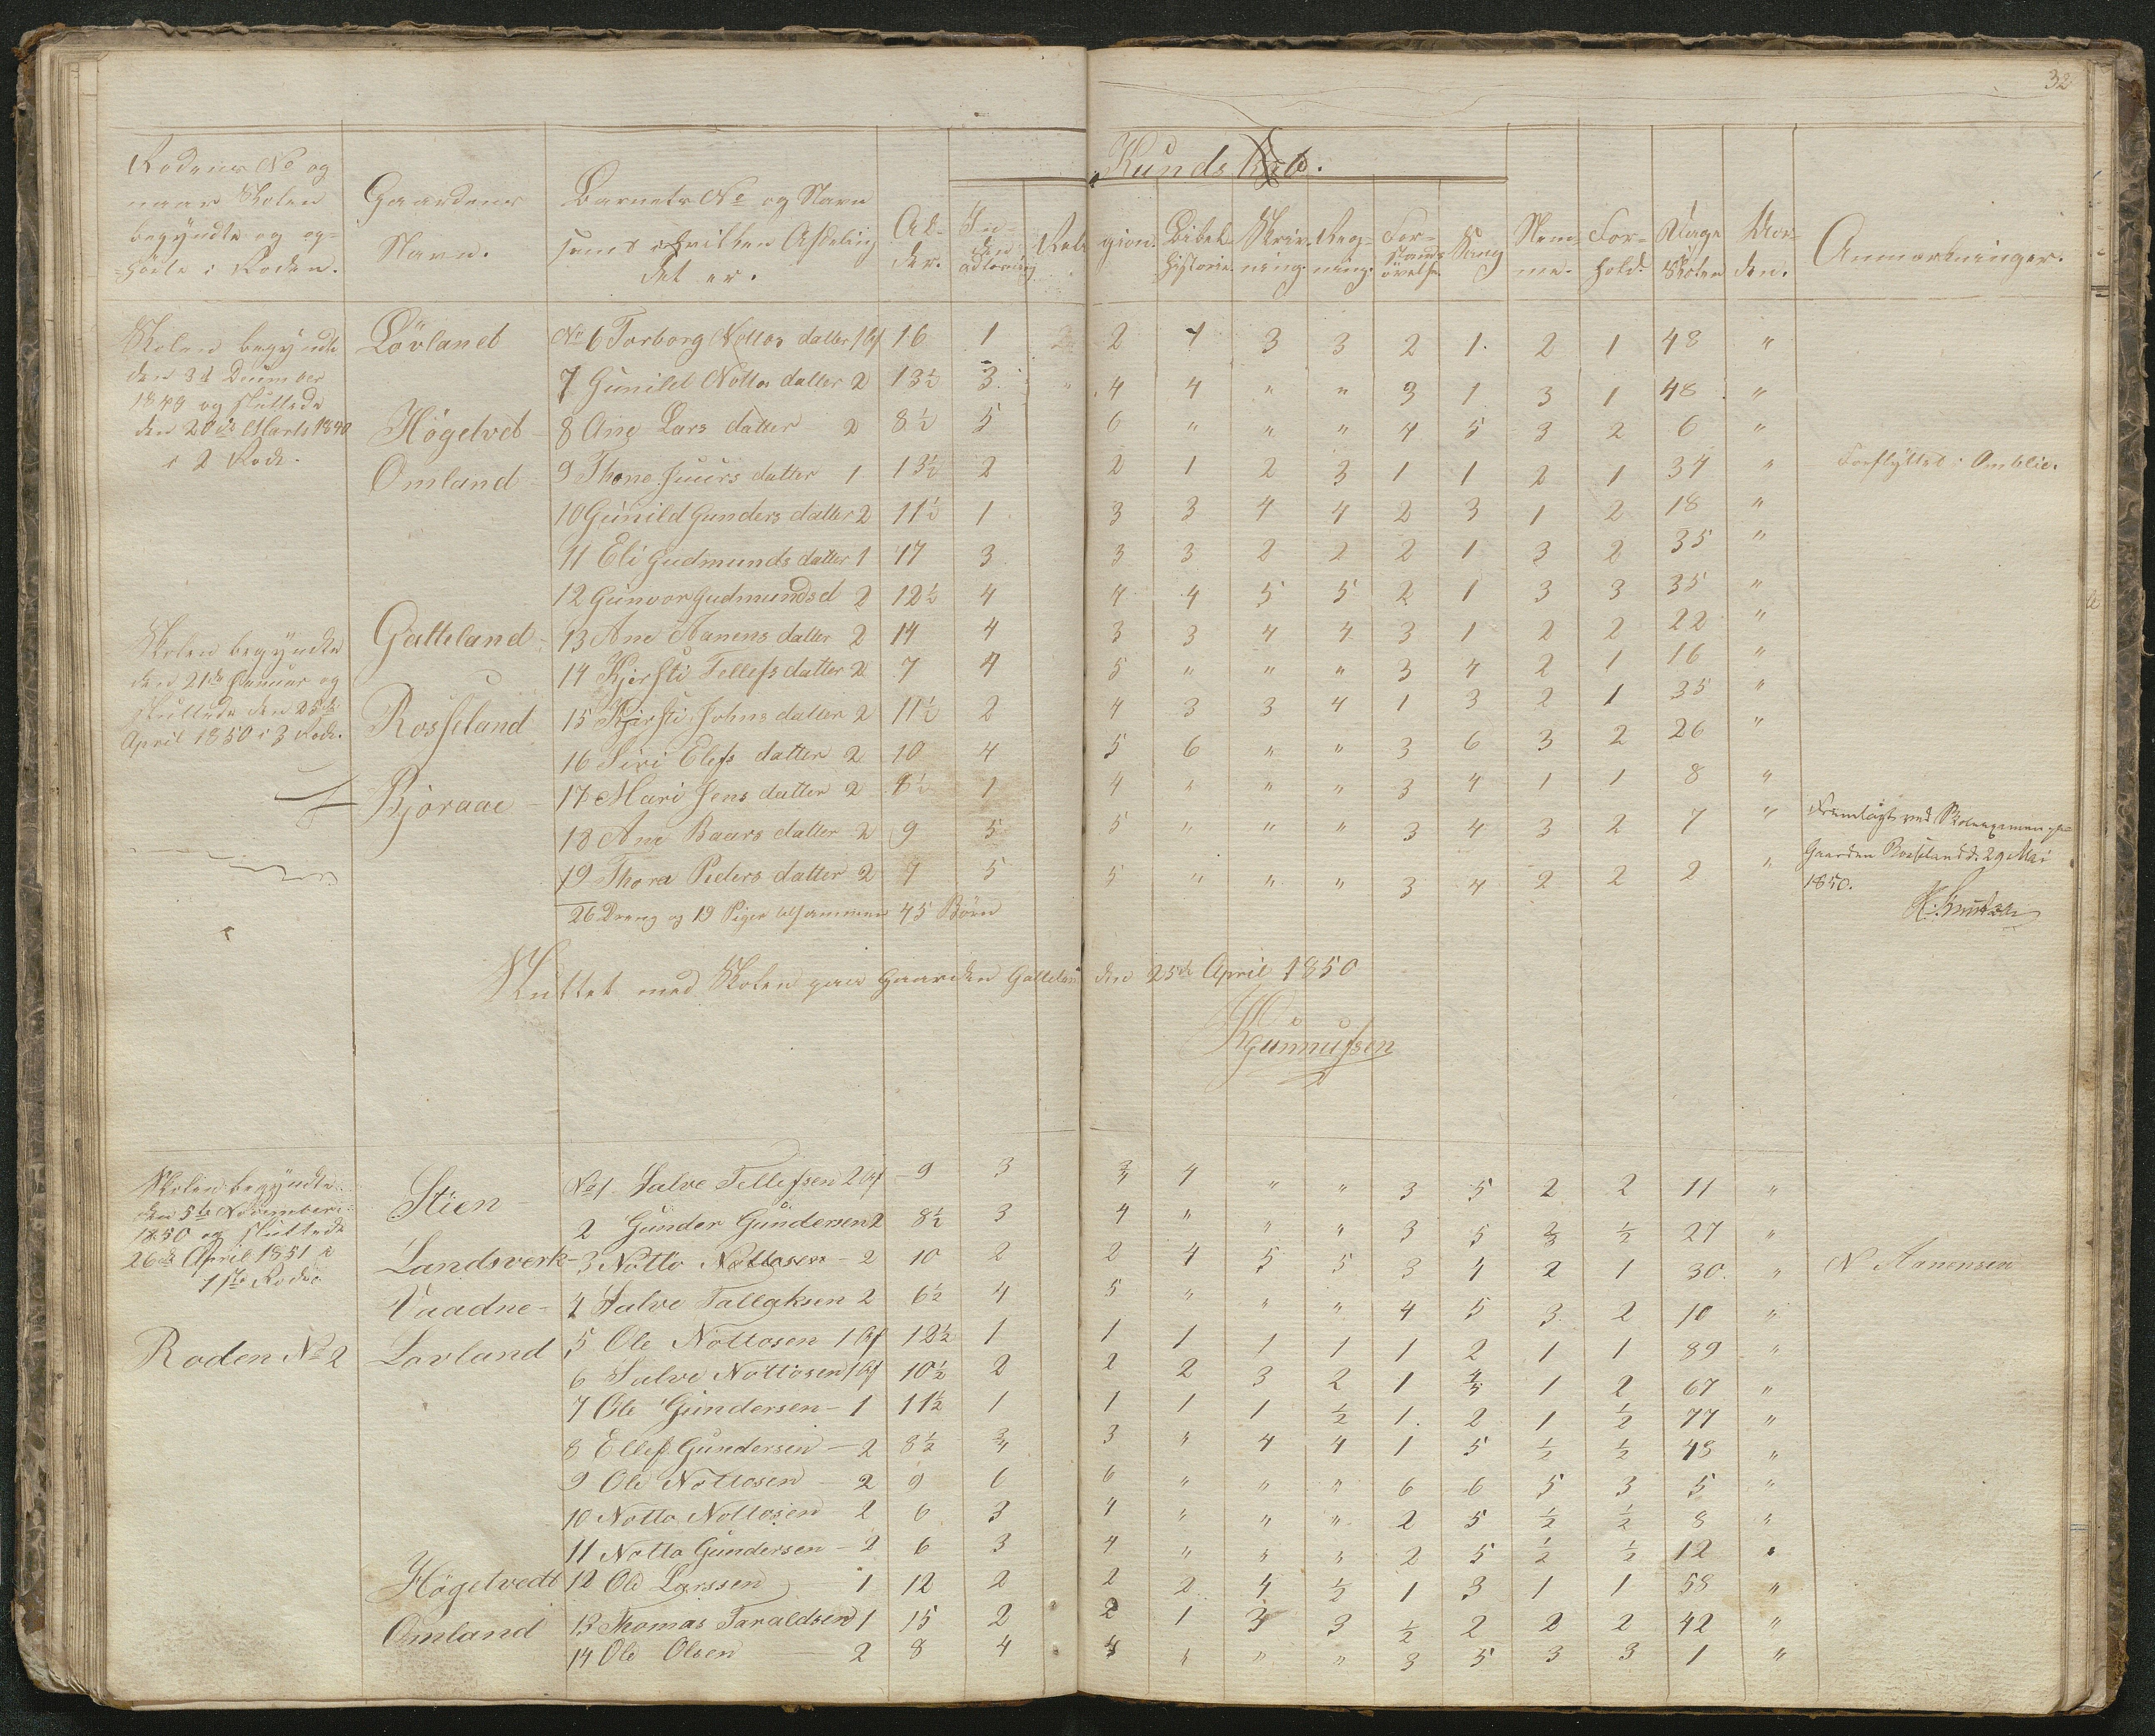 32
Kundskab.
Rodens No og naar Skolen begyndte og op=hørte i Roden.
Gaardens Navn.
Barnets No og Navn samt i hvilken Afdeling det er.
Al-der.
In-den adlæsning
Reli gion.
Bibel-historie.
Skriv-ning.
Reg-ning.
For-stands øvelse.
Sang
Nem-me.
For-hold.
Dage Skolen
Anmærkninger.
Skolen begyndte
den 3d December
1849 og sluttede
den 20de Marts 1840
i 2 Rode.
Lövland No 6 Torborg Nottos datter 1 Af 16 1 2 4 3 3 2 1. 2 1 48 "
7 Gunild Nottos datter 2 13½ 3. 4 4 " " 3 1 3 1 48 "
Högetved 8 Ane Lars datter 2 8½ 5 6 " " " 4 5 3 2 6 "
Omland 9 Thone Juurs datter 1 13½ 2 2 1 2 3 1 1 2 1 34 " Forflyttet i Omblie.
10 Gunild Gunders datter 2 11½ 1 3 3 4 4 2 3 1 2 18 "
11 Eli Gudmunds datter 1 17 3 3 3 2 2 2 1 3 2 35 "
12 Gunvor Gudmundsd 2 12½ 4 4 4 5 5 2 1 3 3 35 "
Skolen begyndte
den 21de Januar og
sluttede den 25de
April 1850 i 3 Rode.
Galteland 13 Ane Aanens datter 2 14 4 3 3 4 4 3 1 2 2 22 "
14 Kjersti Tellefs datter 2 7 4 5 " " " 3 4 2 1 16 "
Rosseland 15 Kjersti Johns datter 2 11½ 2 4 3 3 4 1 3 2 1 35 "
16 Siri Elefs datter 2 10 4 5 6 " " 3 6 3 2 26 "
Bjoraae 17 Mari Jens datter 2 8½ 1 4 " " " 3 4 1 1 8 "
18 Ane Baars datter 2 9 5 5 " " " 3 4 3 2 7 "
19 Thora Peders datter 2 9 5 5 " " " 3 4 2 2 2 "
Fremlagt ved Skoleexamen paa
Gaarden Rosseland d. 29 Mai
1850.
26 Dreng og 19 Piger tilsammen 45 Børn
Sluttet med Skolen paa Gaarden Galteland den 25de April 1850
KGunnufsen
Skolen begyndte
den 5te November
1850 og sluttede
26de April 1851 i
1ste Rode
Stien No 1. Salve Tellefsen 2 Af 9 3 3/4 4 " " 3 5 2 2 11 "
2 Gunder Gundersen 2 8½ 3 4 " " " 3 5 2/3 ½ 27 "
Landsverk - 3 Notto Nottosen - 2 10 2 2 4 5 5 3 4 2 1 30. " N Aanensen
Vaadne - 4 Salve Tallaksen 2 6½ 4 5 " " " 4 5 3 2 10 "
Roden No 2 Lovland 5 Ole Nottosen 1 Af 12½ 1 1 1 1 1 1 2 1 1 89 "
6 Salve Nottosen 1 Af 10½ 2 2 2 3 2 1 4/5 1 2 67 "
7 Ole Gundersen - 1 11½ 1 1 1 1 ½ 1. 2 1 ½ 77 "
8 Ellef Gundersen - 2 8½ 3/4 3 " 4 4 1 5 ½ ½ 48 "
9 Ole Nottosen - 2 9 6 6 " " " 6 6 5 3 5 "
10 Notto Nottosen 2 6 3 4 " " " 2 5 ½ ½ 8 "
11 Notto Gundersen - 2 6 3 4 " " " 2 5 ½ ½ 12 "
Högetvedt 12 Ole Larssen 1 12 2 2 2 4 ½ 1 3 1 1 58 "
Omland 13 Thomas Taraldsen 1 15 2 2 1 3 3 ½ 2 2 2 42 "
14 Ole Olsen 2 8 4 4 " " " 3 5 3 3 1 "